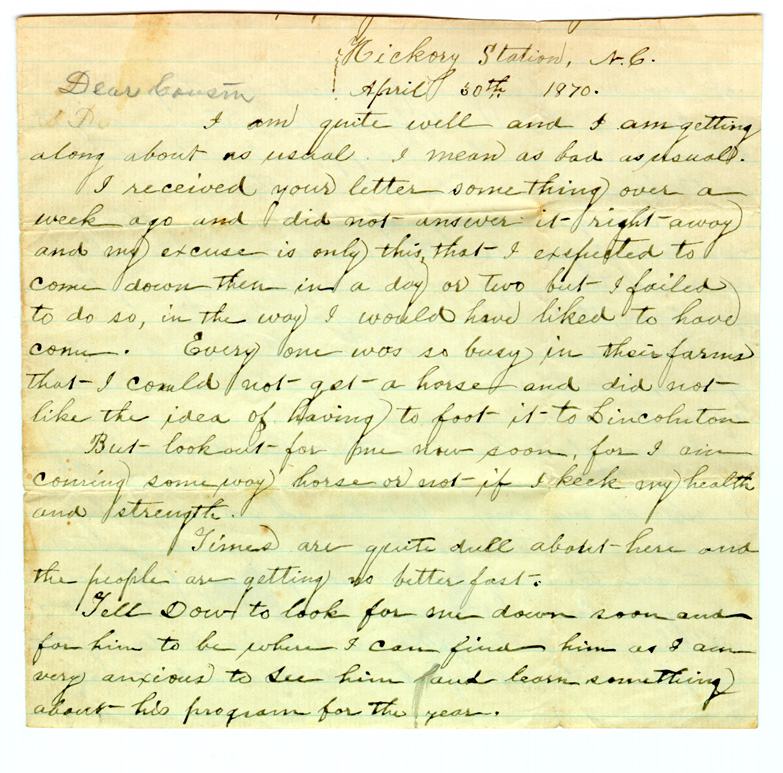 Hickory Station, N.C.
Dear Cousin April 30th 1870.
I am quite well and I am getting
along about as usual. I mean as bad as usual.
I received your letter something over a
week ago and did not answer it right away
and my excuse is only this, that I exspected to
come down then in a day or two but I failed
to do so, in the way I would have liked to have
come. Every one was so busy in their farms
that I could not get a horse and did not
like the idea of having to foot it to Lincolnton
But look out for me now soon, for I am
coming some way horse or not if I keek my health
and strength.
Times are quite dull about here and
the people are getting no better fast.
Tell Dow to look for me down soon and
for him to be where I can find him as I am
very anxious to see him and learn something
about his program for the year.